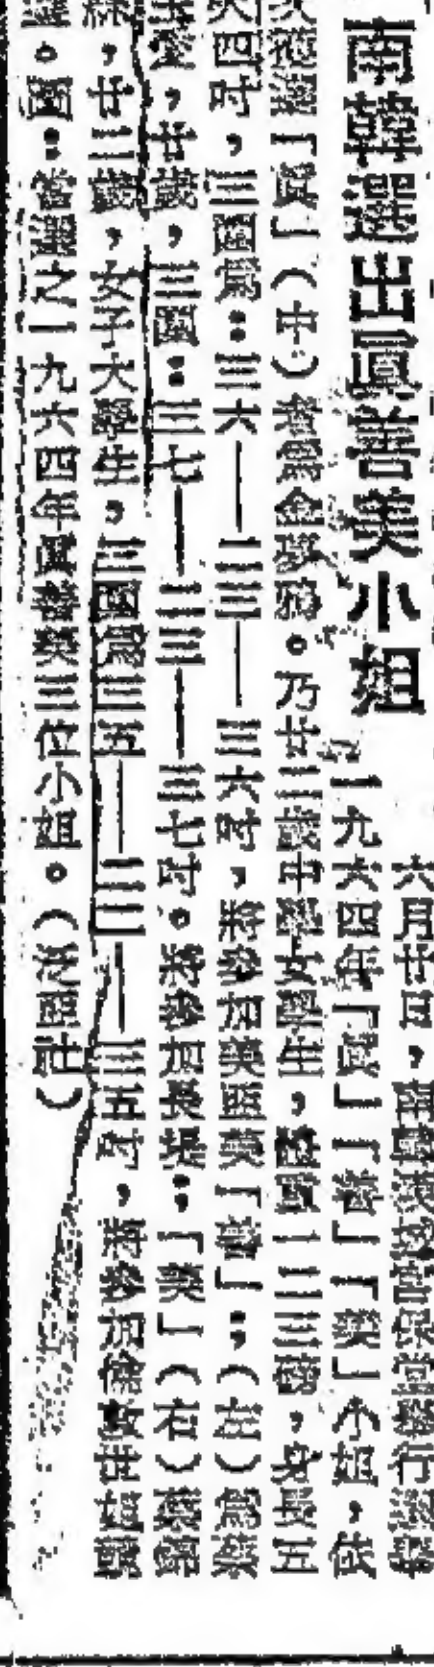 南韓選出眞善美小姐
六月廿日,南韓舉行選舉
一九六四年「眞」「善」「美」小姐,依
次選「眞」(中)者爲金。乃廿三歲中學女學生,體重一二三磅,身長五
尺四吋,三圍爲:三六——二三——三六吋,將參加美國「善」;(左)爲蔡
愛,廿歲,三圍:三七——二三——三七吋。將參加長堤;「美」(右)錦
綵,廿二歲,女子大學生,三圍爲三五——二二——三五吋,將參加倫敦世姐競
選。圖:當選之一九六四年眞善美三位小姐。(泛社)